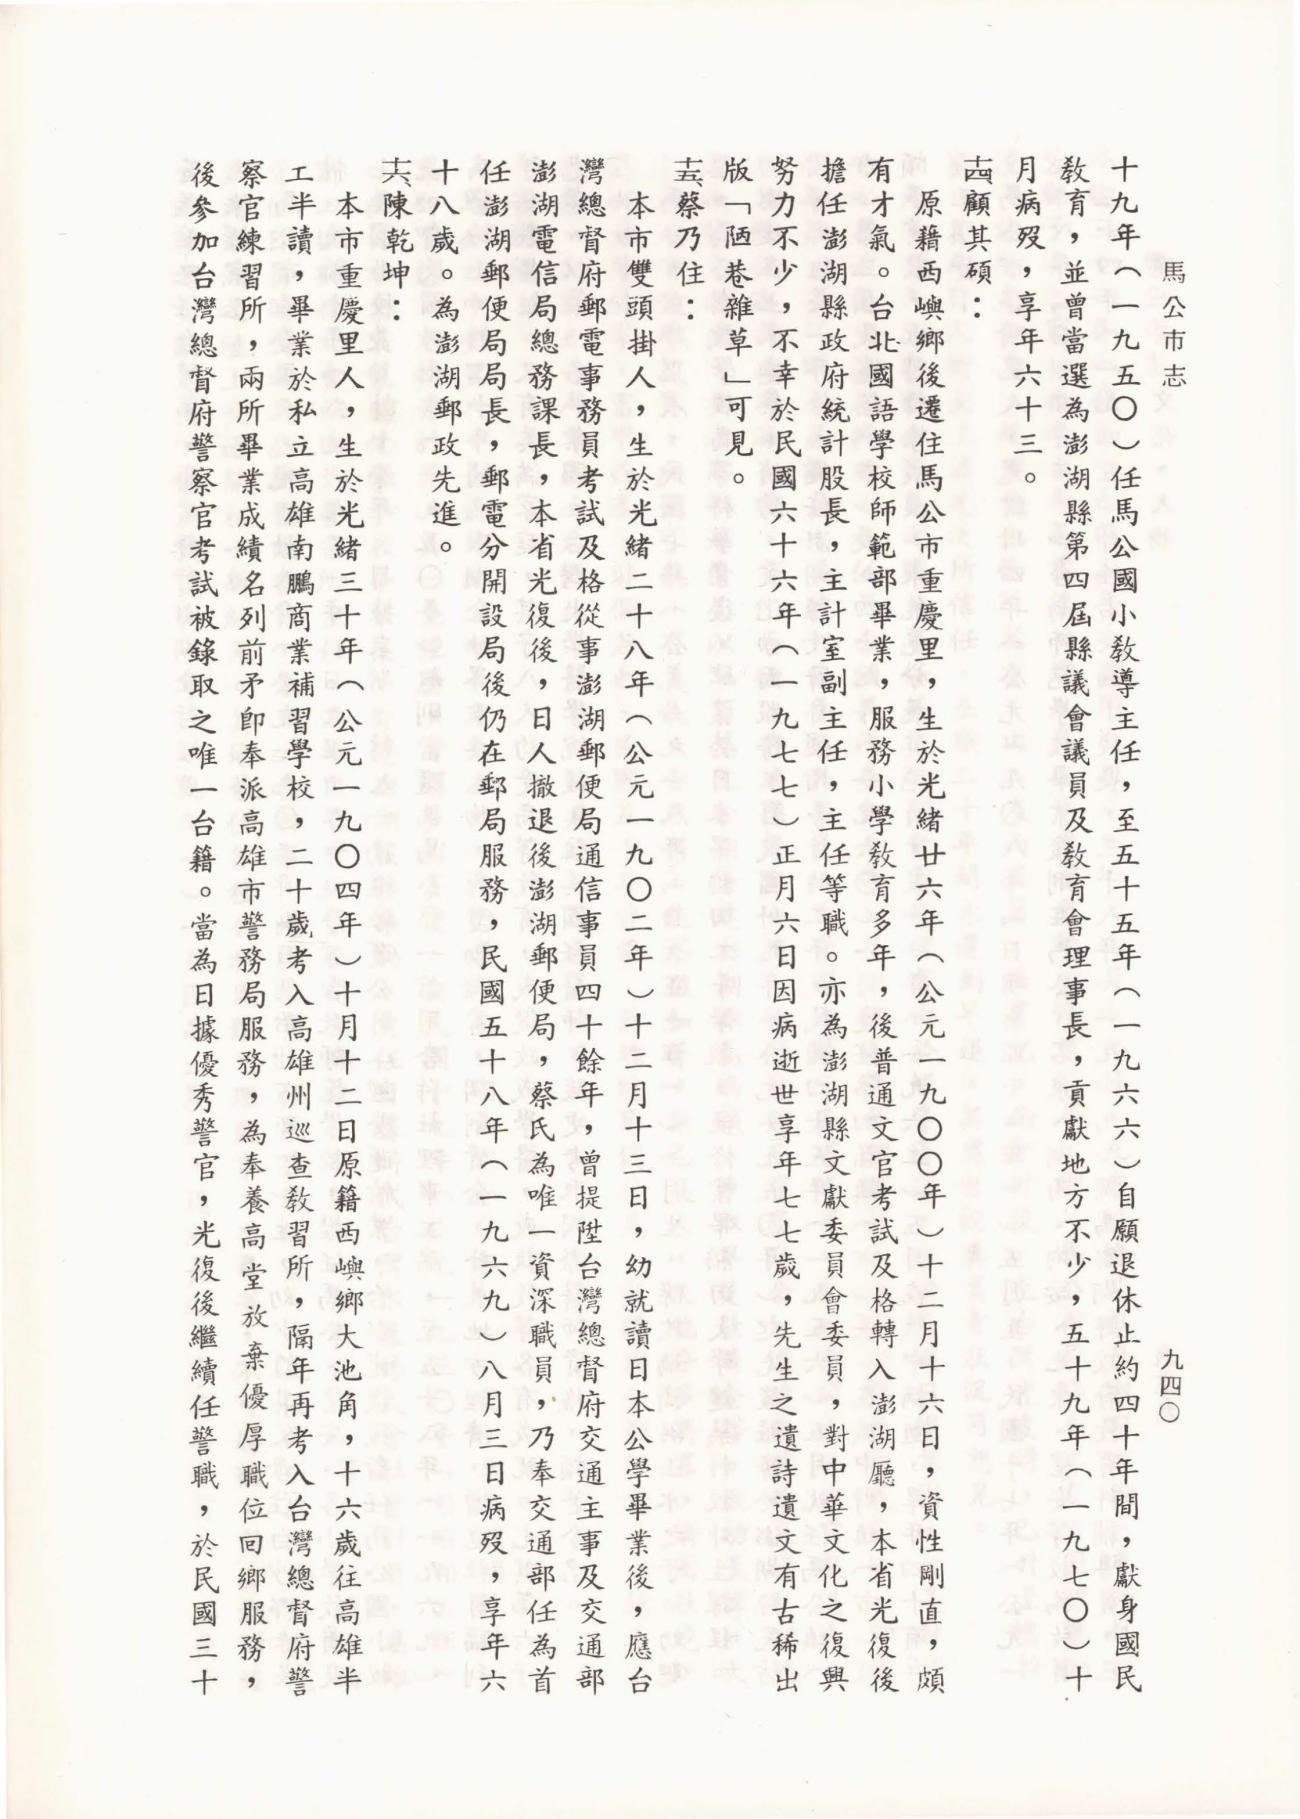 馬公市志
九四〇
十九年（一九五〇）任馬公國小教導主任，至五十五年（一九六六）自願退休止約四十年間，獻身國民
教育，並曾當選為澎湖縣第四屆縣議會議員及教育會理事長，貢獻地方不少，五十九年（一九七〇）十
月病歿，享年六十三。
十四、顧其碩：
原籍西嶼鄉後遷住馬公市重慶里，生於光緒廿六年（公元一九〇〇年）十二月十六日，資性剛直，頗
有才氣。台北國語學校師範部畢業，服務小學教育多年，後普通文官考試及格轉入澎湖廳，本省光復後
擔任澎湖縣政府統計股長，主計室副主任，主任等職。亦為澎湖縣文獻委員會委員，對中華文化之復興
努力不少，不幸於民國六十六年（一九七七）正月六日因病逝世享年七七歲，先生之遺詩遺文有古稀出
版「陋巷雜草」可見。
十五、蔡乃住：
本市雙頭掛人，生於光緒二十八年（公元一九〇二年）十二月十三日，幼就讀日本公學畢業後，應台
灣總督府郵電事務員考試及格從事澎湖郵便局通信事員四十餘年，曾提陞台灣總督府交通主事及交通部
澎湖電信局總務課長，本省光復後，日人撤退後澎湖郵便局，蔡氏為唯一資深職員，乃奉交通部任為首
任澎湖郵便局局長，郵電分開設局後仍在郵局服務，民國五十八年（一九六九）八月三日病歿，享年六
十八歲。為澎湖郵政先進。
十六、陳乾坤：
本市重慶里人，生於光緒三十年（公元一九〇四年）十月十二日原籍西嶼鄉大池角，十六歲往高雄半
工半讀，畢業於私立高雄南鵬商業補習學校，二十歲考入高雄州巡查教習所，隔年再考入台灣總督府警
察官練習所，兩所畢業成績名列前矛卽奉派高雄市警務局服務，為奉養高堂放棄優厚職位回鄉服務，
後參加台灣總督府警察官考試被錄取之唯一台籍。當為日據優秀警官，光復後繼續任警職，於民國三十